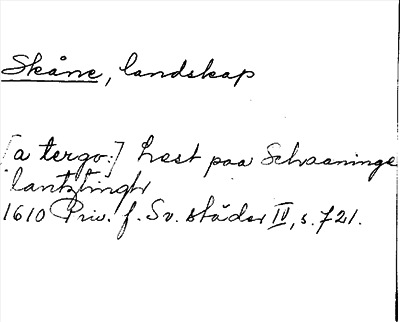 Skåne, landskap
[a tergo:] Lest paa Schaaninge
lantztingh
1610 Priv. f. Sv. städer IV, s. 721.